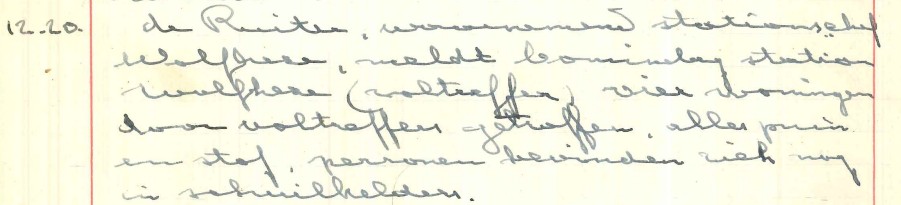 12.20. de Ruiter, waarnemend stationschef
Wolfheze, meldt bominslag station
Wolfheze (voltreffer) vier woningen
door voltreffers getroffen, alles puin
en stof, personen bevinden zich nog
in schuilkelders.